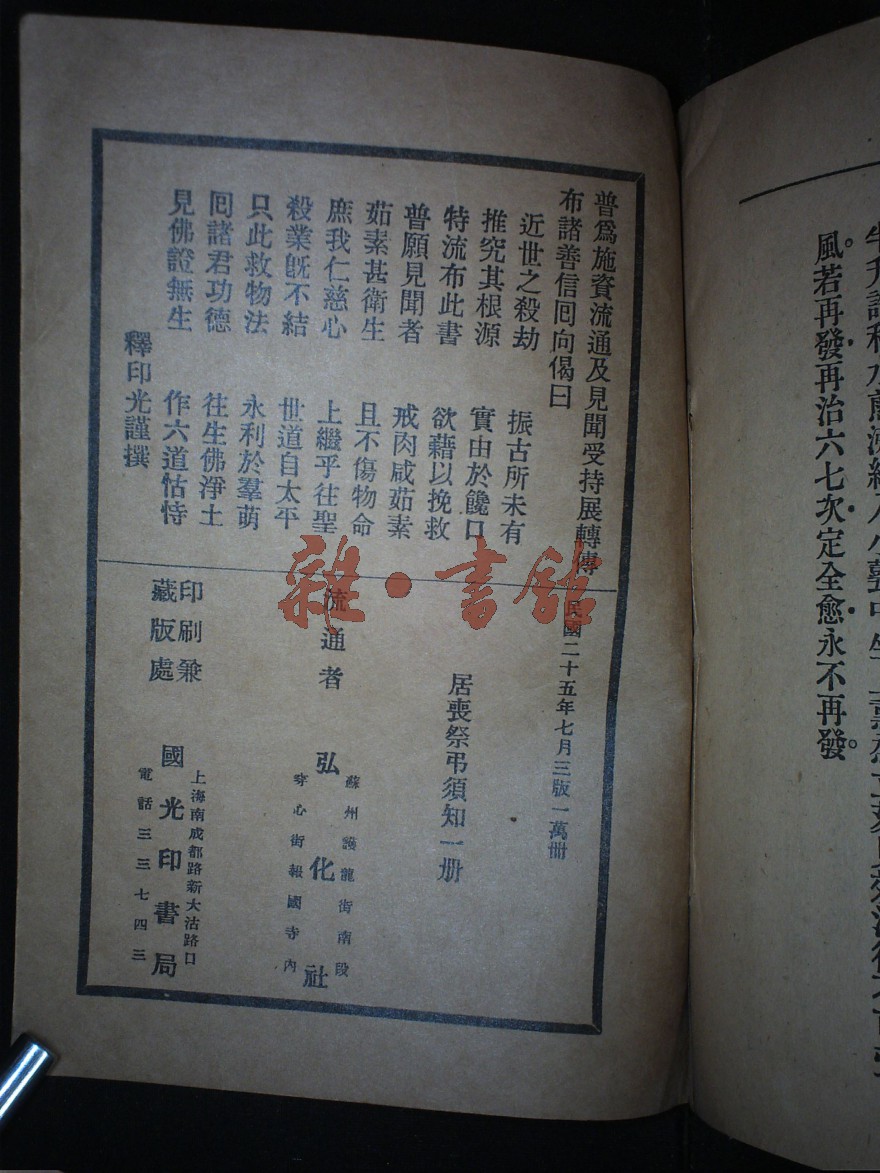 風若再發再治六七次定全愈永不再發。
普爲施資流通及見聞受持展轉傳
布諸善信回向偈曰
近世之殺劫　振古所未有
推究其根源　實由於饞口
特流布此書　欲藉以挽救
普願見聞者　戒肉咸茹素
茹素甚衛生　且不傷物命
庶我仁慈心　上繼乎往聖
殺業旣不結　世道自太平
只此救物法　永利於羣萌
回諸君功德　往生佛淨土
見佛證無生　作六道怙恃
釋印光謹撰
民國二十五年七月三版一萬冊
居喪祭弔須知一册
流通者
弘化社
蘇州護龍街南段
穿心街報國寺內
印刷兼
藏版處
國光印書局
上海南成都路新大沽路口
電話三三七四三
雜·書館